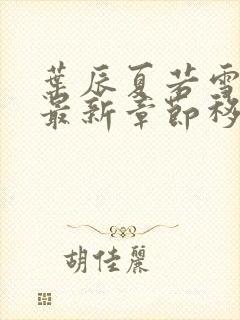 葉辰夏若雪
最新章節移
胡佳麗